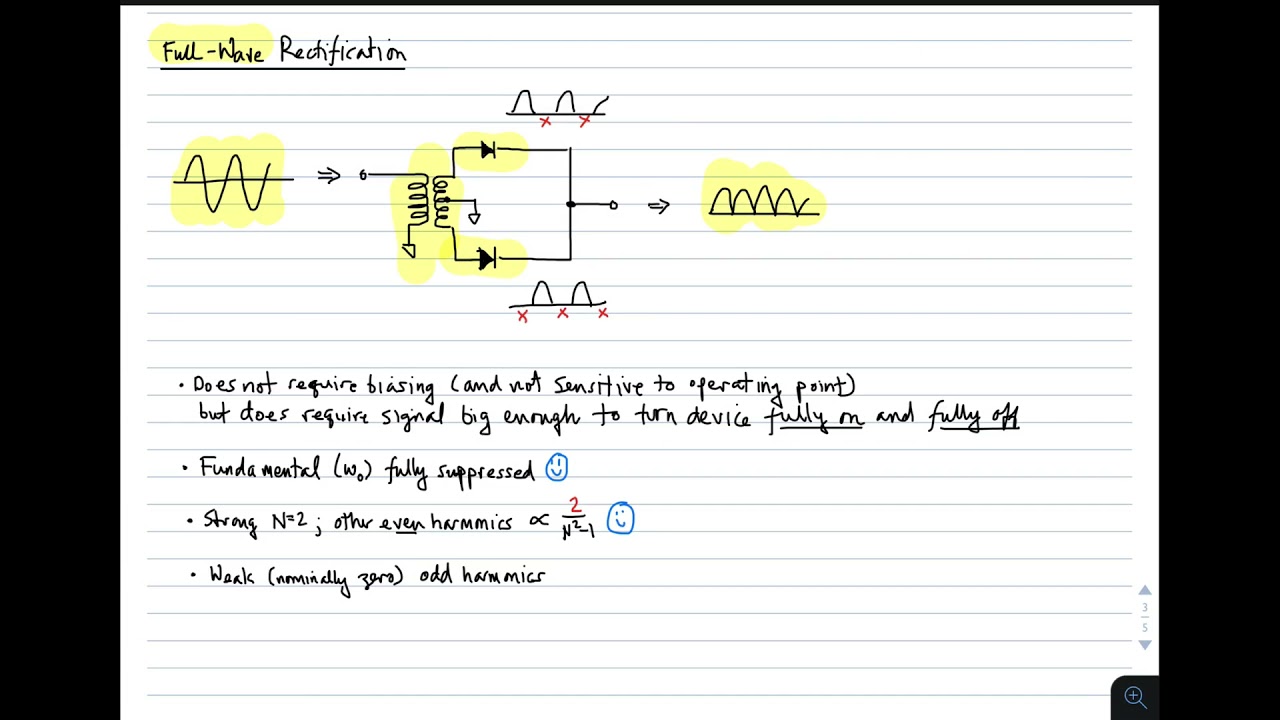 Full-Wave Rectification
x x
x x x
• Does not require biasing (and not sensitive to operating point)
but does require signal big enough to turn device fully on and fully off
• Fundamental (ω₀) fully suppressed
• Strong N=2; other even harmonics ∝ 2/(N²-1)
• Weak (nominally zero) odd harmonics
3
5